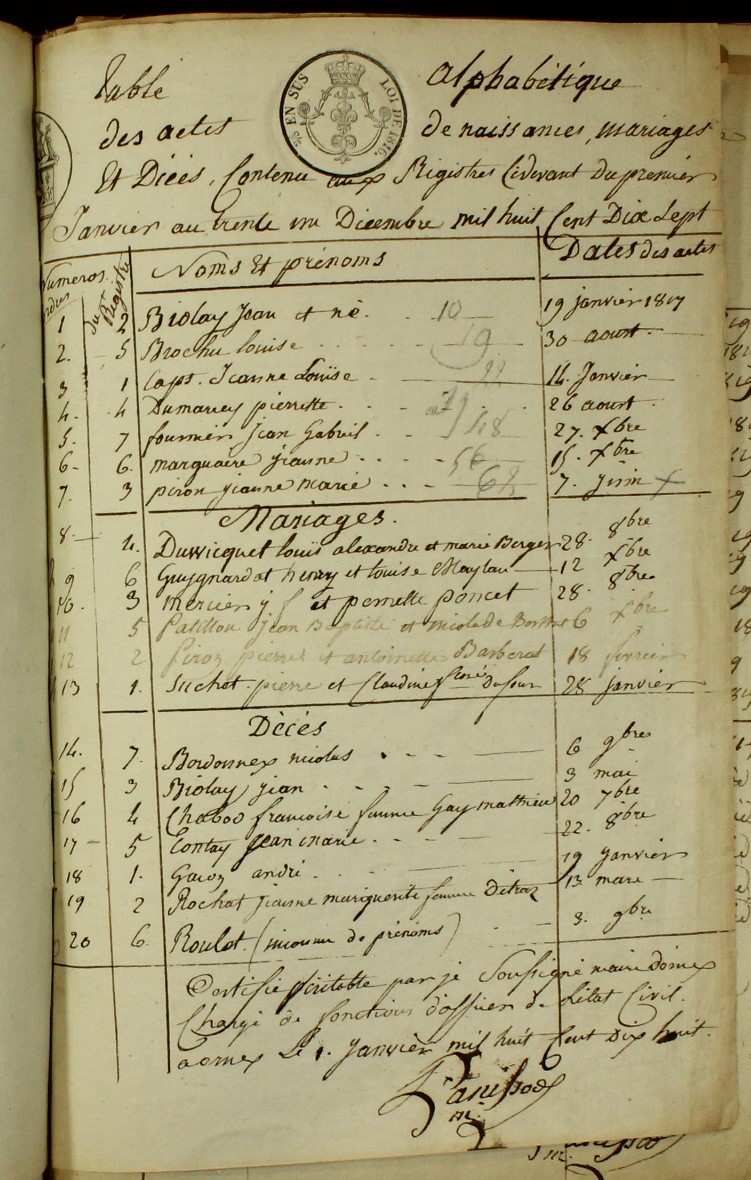 Table alphabétique
EN SUS LOI DE 1816.
des actes de naissances, mariages
Et Décés, Contenu aux Registres Cidevant Du premier
Janvier au trente un Décembre mil huit Cent Dix Sept
Numeros ordres du Registre Noms Et prénoms Dates des actes
1 2 Biolay Jean et né 10 19 janvier 1817
2. 5 Brochu louise 19 30 aoust
3 1 Caps. Jeanne Louise 14. Janvier
4. 4 Dumarey pierrette 26 aoust
5. 7 fournier Jean Gabriel 48 27. xbre
6. 6. marguaire jeanne 56 15. xbre
7. 3 piron jeanne marie 62 7. juin x
Mariages.
8. 4. Duwicquet louis alexandre et marie Berger 28. 8bre
9 6 Guygnardat henry et louise 12 xbre
10. 3 mercier j f et perrette poncet 28. 8bre
11 5 Patillon Jean Baptiste et nicolade 6 xbre
12 2 Piron pierre et antoinette Barberat 18 fevrier
13 1. Suchet pierre et Claudine Dufour 28 janvier
Décés
14. 7. Bordonnex nicolas 6 9bre
15 3 Biolay jean 3 mai
16 4 Chabod francoise femme Gay mathieu 20 7bre
17 5 Contay Jean marie 22. 8bre
18 1. Gavoz andré 19 janvier
19 2 Rochat jeanne marguerite femme Detraz 13 mars
20 6. Roulet. (inconnu de prénoms) 3. 9bre
Certifié véritable par je Soussigné maire Dornex
Chargé de fonctions d'officier de L'état Civil.
a ornex Le 1. Janvier mil huit Cent Dix huit.
Panissod
m.